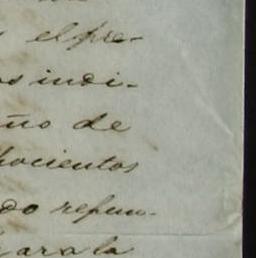 el pre-
os indi-
ño de
hocientos
do refun-
para la